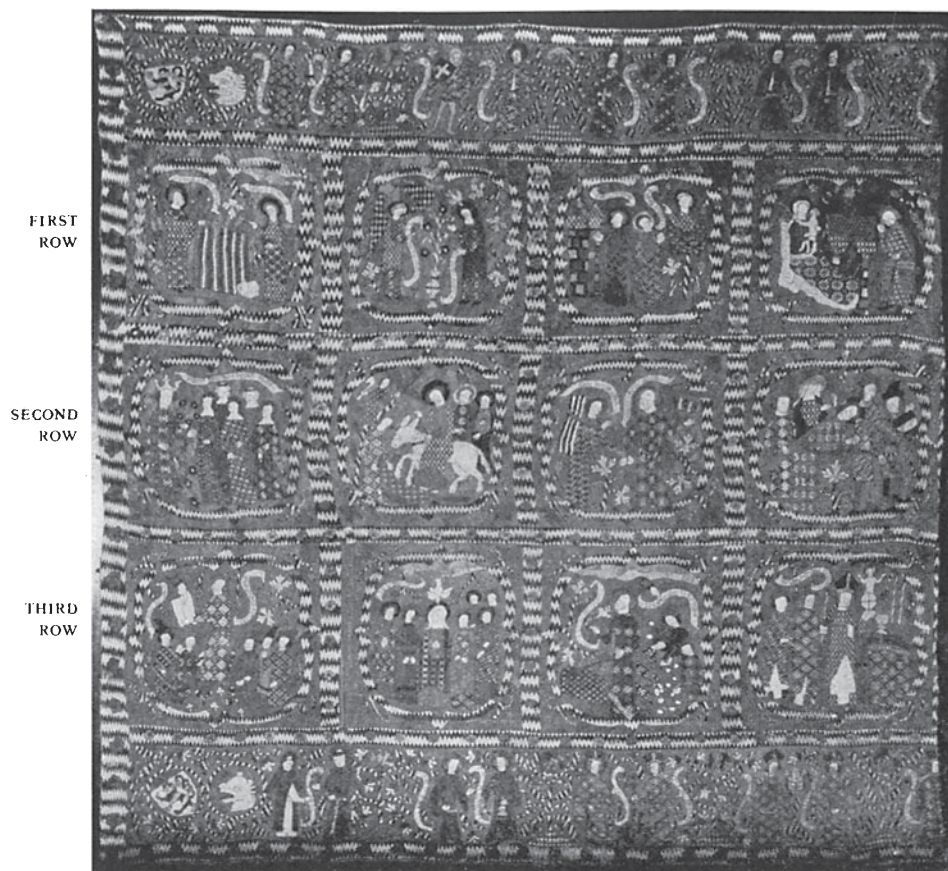 FIRST
ROW
SECOND
ROW
THIRD
ROW